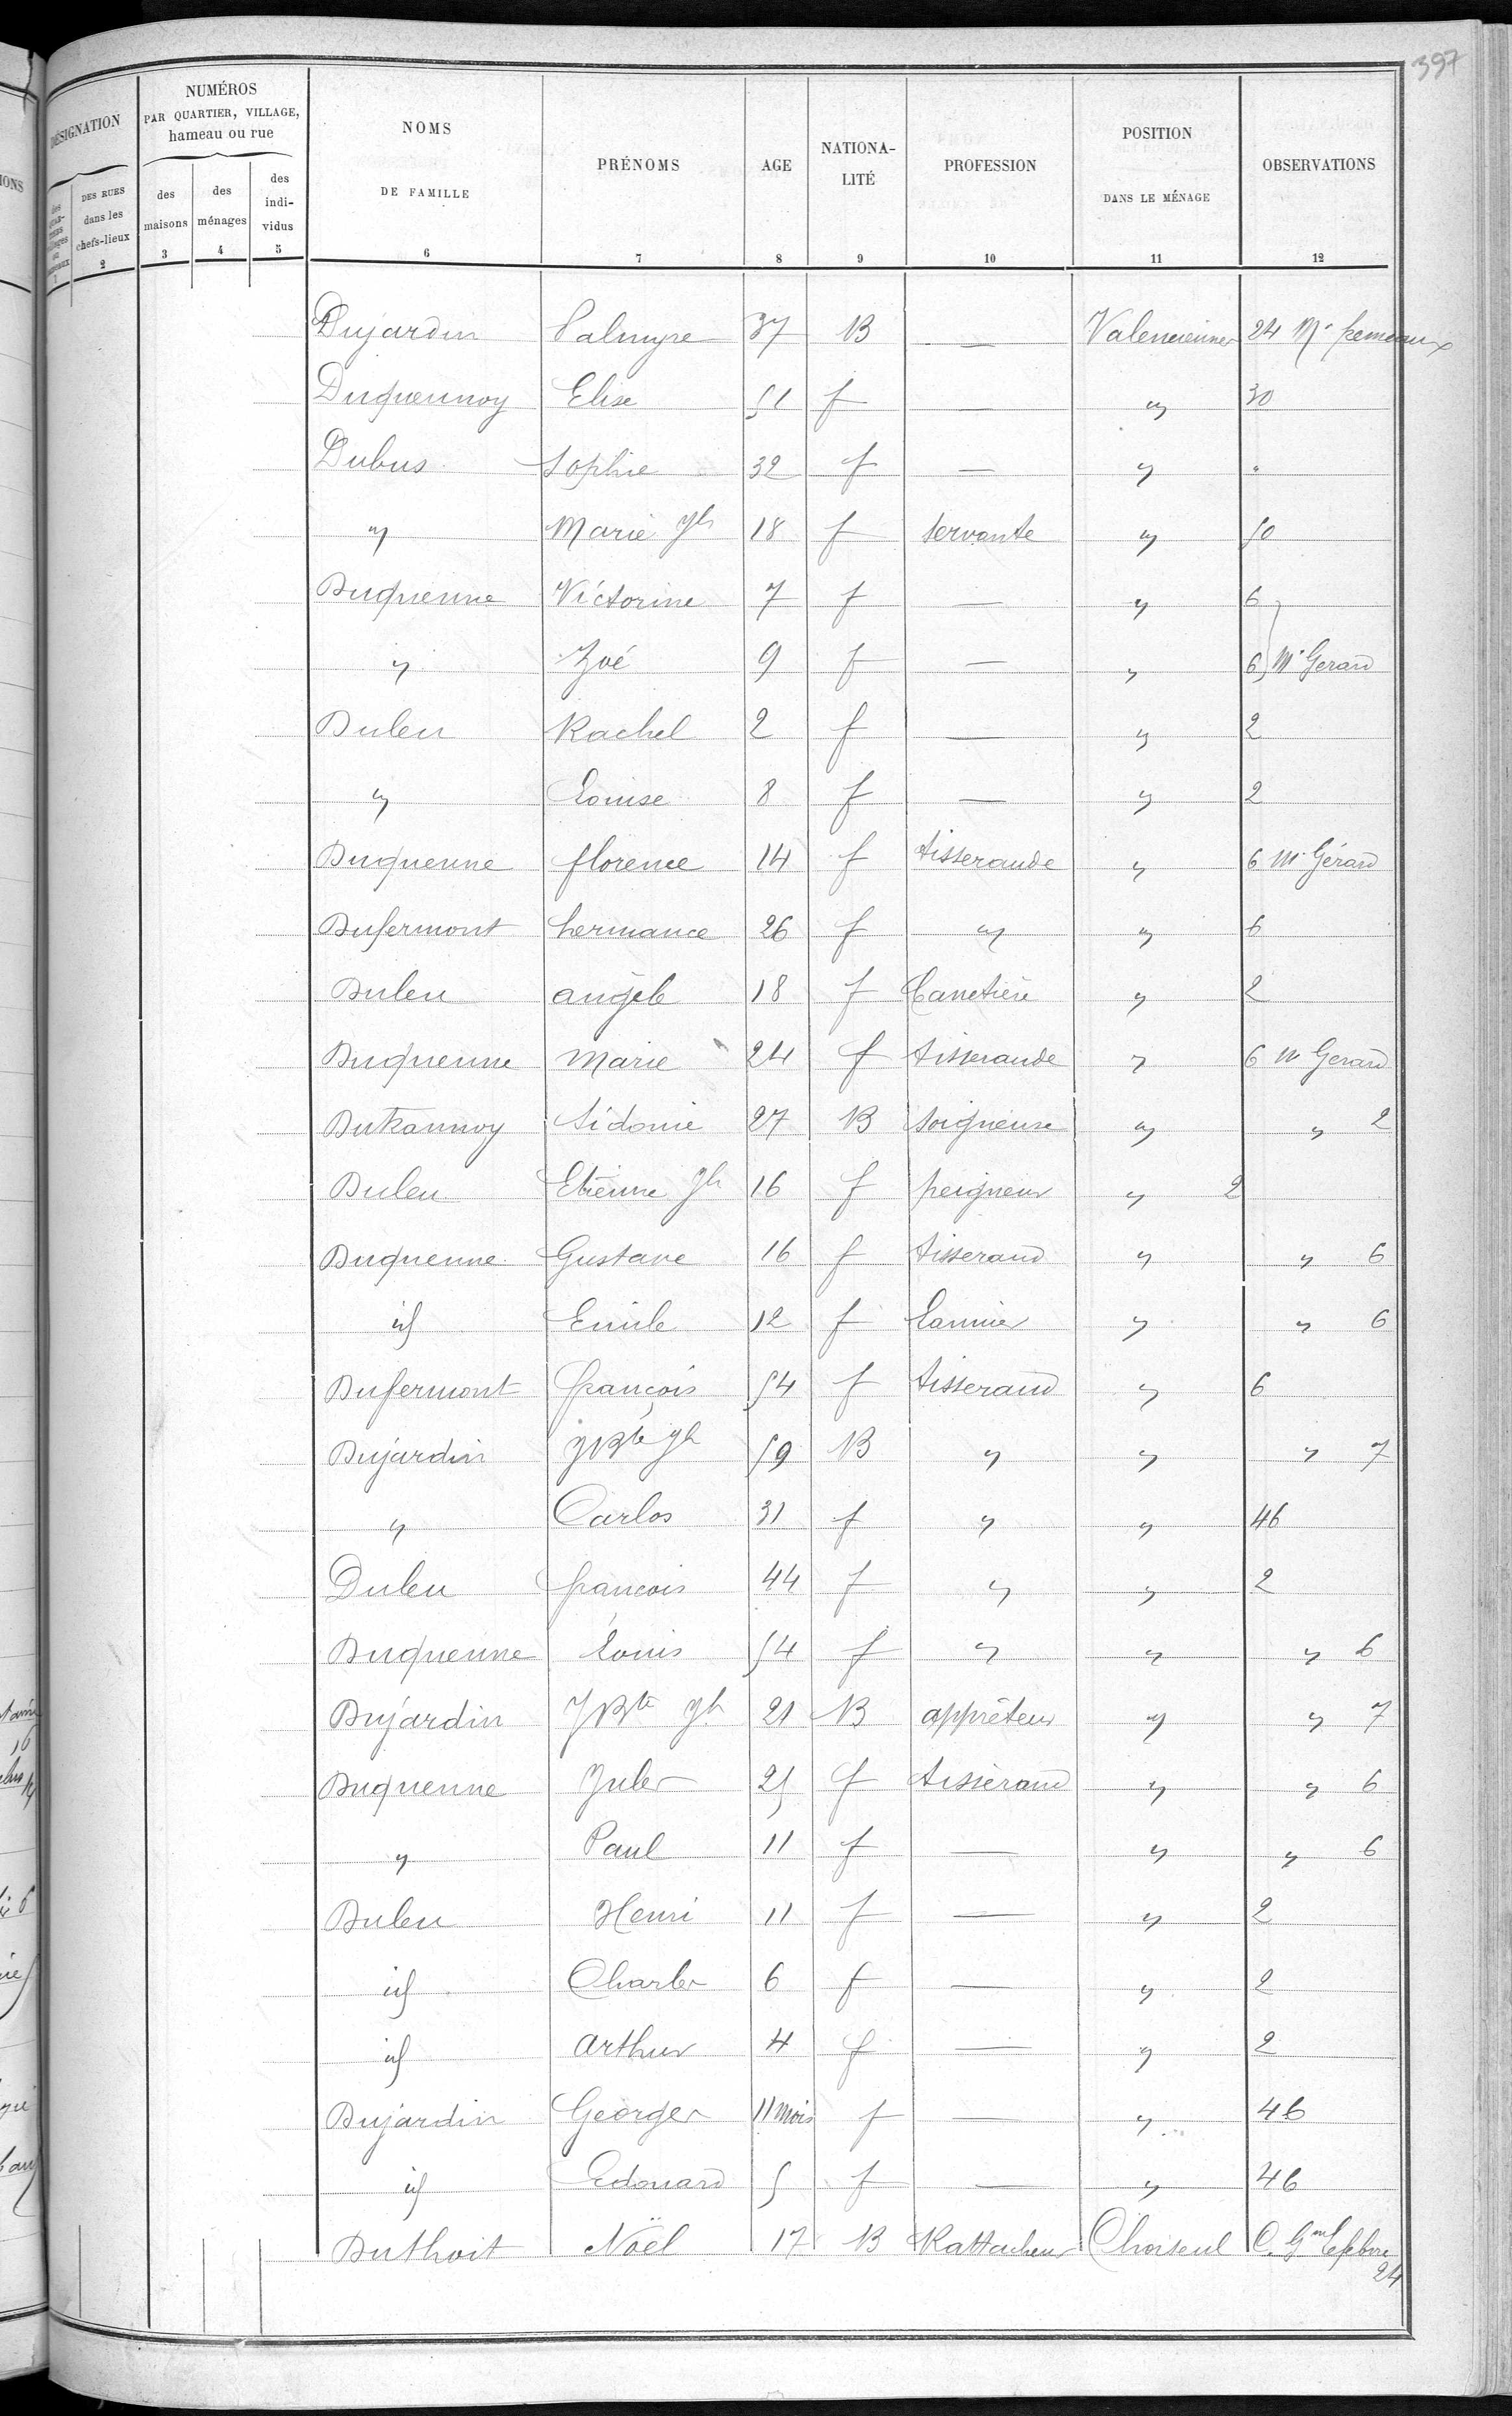 397
DÉSIGNATION
NUMÉROS
PAR QUARTIER, VILLAGE,
hameau ou rue
DES RUES
dans les
chefs-lieux
2
des
maisons
3
des
ménages
4
des
indi-
vidus
5
NOMS
DE FAMILLE
6
PRÉNOMS
7
AGE
8
NATIONA-
LITÉ
9
PROFESSION
10
POSITION
DANS LE MÉNAGE
11
OBSERVATIONS
12
Dujardin Palmyre 37 B — Valenciennes 24 Mn
Duquennoy Elise 51 f — " 30
Dubus Sophie 32 f — " "
" Marie Jh 18 f servante " 50
Duquenne Victorine 7 f — " 6
" Zoé 9 f — " 6 Mn Gerard
Duleu Rachel 2 f — " 2
" Louise 8 f — " 2
Duquenne florence 14 f tisserande " 6 Mn Gérard
Dufermont hermance 26 f " " 6
Duleu angèle 18 f Canetière " 2
Duquenne Marie 24 f tisserande " 6 M Gerard
Dutrannoy Sidonie 27 B soigneuse " " 2
Duleu Etienne Jh 16 f peigneur " 2
Duquenne Gustave 16 f tisserand " " 6
id Emile 12 f Lamier " " 6
Dufermont françois 54 f tisserand " 6
Dujardin JBte Jh 59 B " " " 7
" Carlos 31 f " " 46
Duleu francois 44 f " " 2
Duquenne Louis 54 f " " " 6
Dujardin JBte Jh 21 B apprêteur " " 7
Duquenne Jules 25 f tisserand " " 6
" Paul 11 f — " " 6
Duleu Henri 11 f — " 2
id Charles 6 f — " 2
id arthur 4 f — " 2
Dujardin Georges 11 mois f — " 46
id Edouard 5 f — " 46
Duthoit Noël 17 B Rattacheur Choiseul C. Gm Lefebvre
24